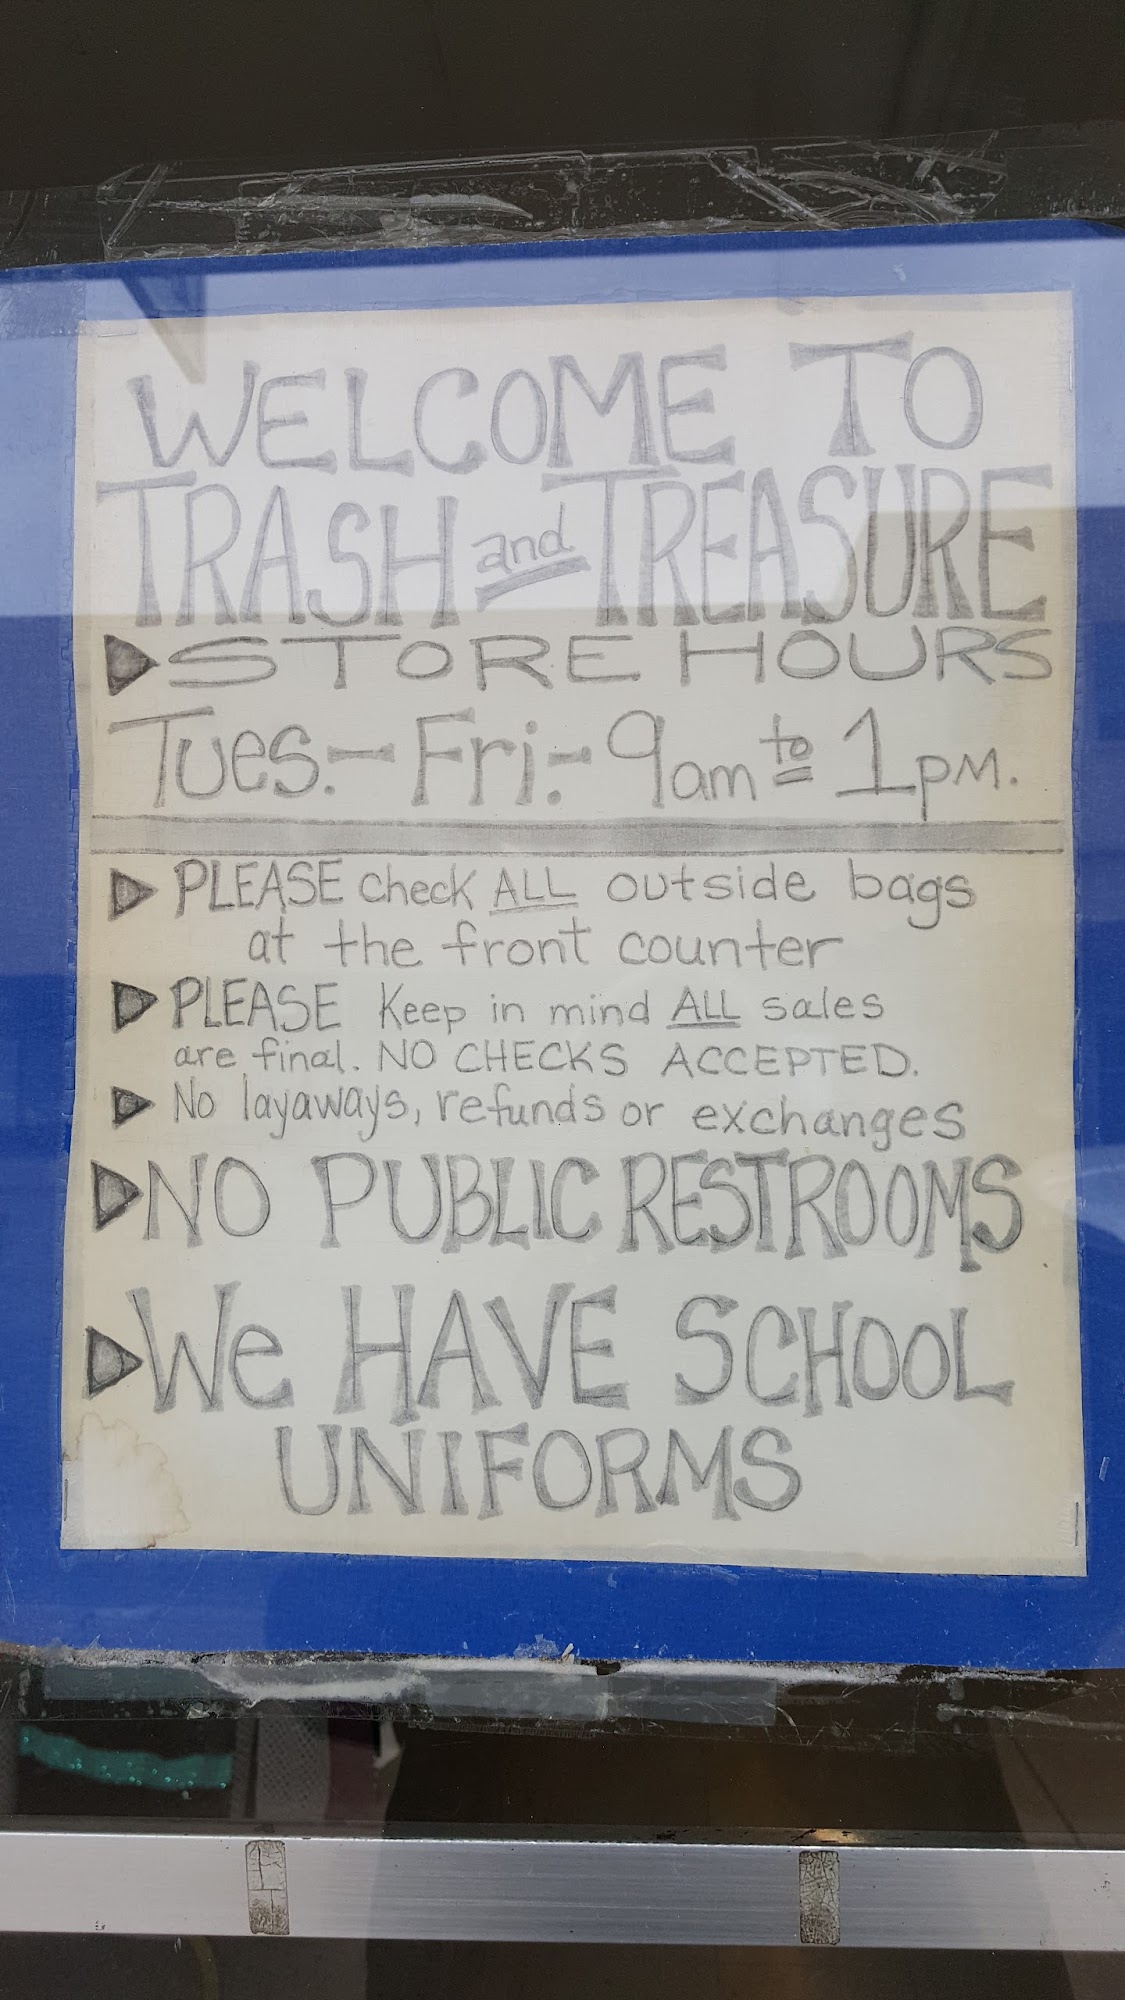 WELCOME TO
TRASH and TREASURE
STORE HOURS
Tues.-Fri.-9am to 1pm.
PLEASE check ALL outside bags
at the front counter
PLEASE Keep in mind ALL sales
are final. NO CHECKS ACCEPTED.
No layaways, refunds or exchanges
NO PUBLIC RESTROOMS
We HAVE SCHOOL
UNIFORMS